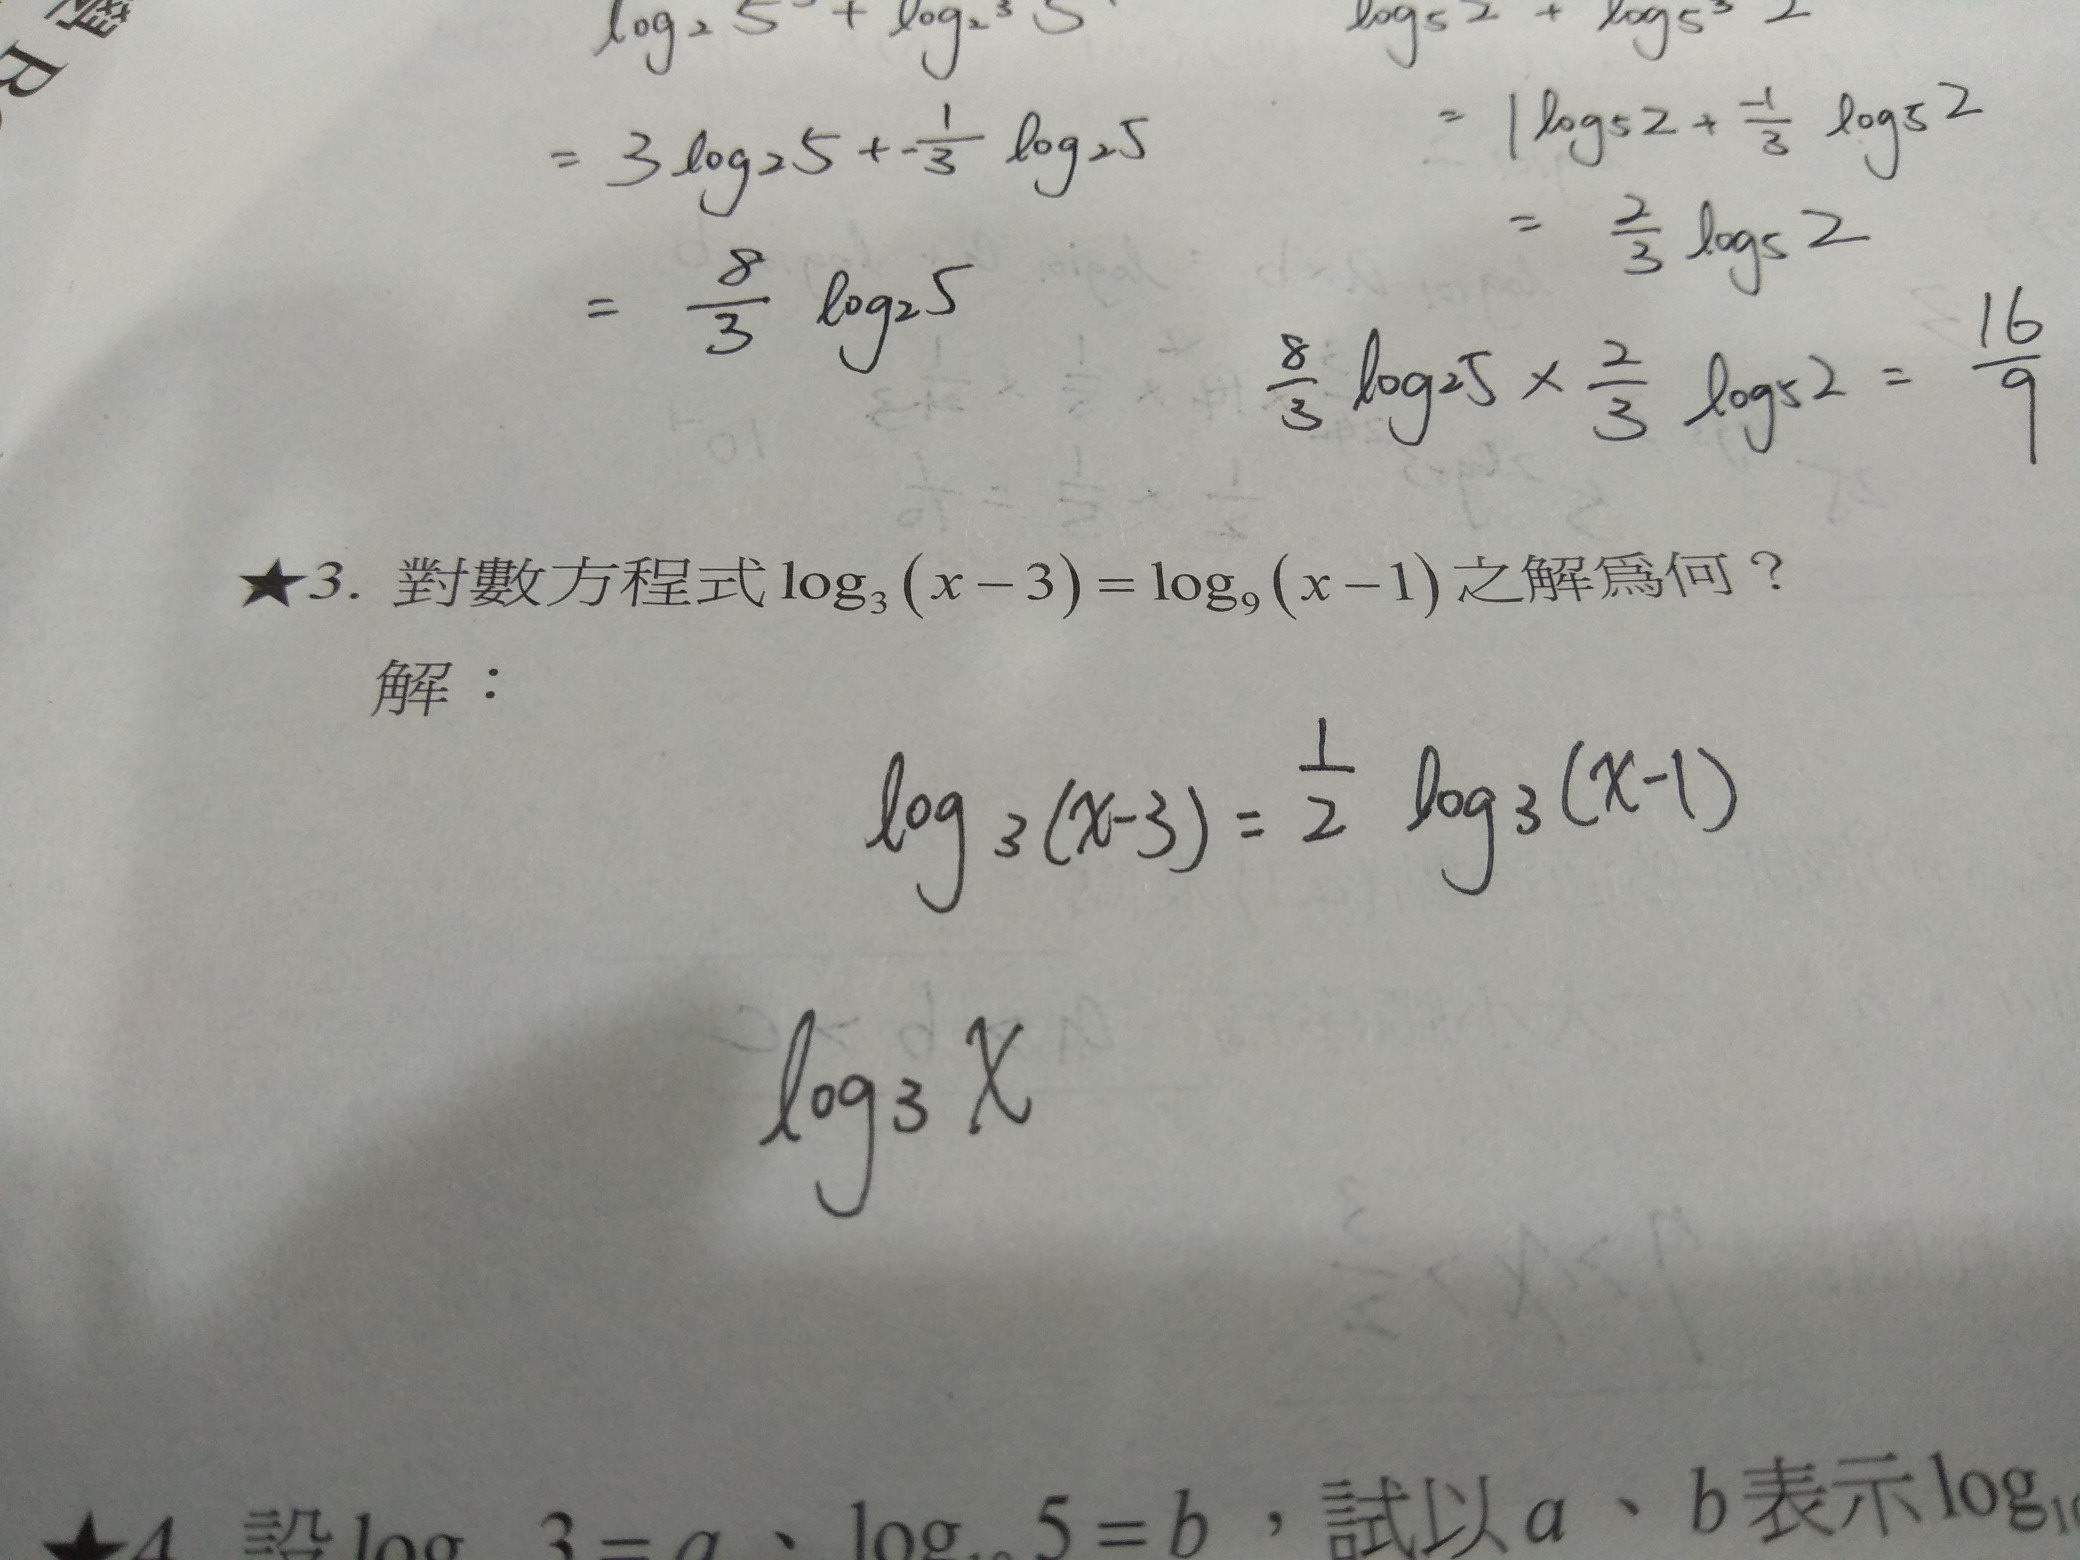 學
log₂ 5³ + log₂³ 5
= 3 log₂5 + -1/3 log₂5
= 8/3 log₂5
log₅ 2 + log₅³ 2
= 1 log₅2 + -1/3 log₅2
= 2/3 log₅2
8/3 log₂5 × 2/3 log₅2 = 16/9
★3. 對數方程式 log₃(x−3)=log₉(x−1) 之解為何？
解：
log₃(x-3) = 1/2 log₃(x-1)
log₃ x
★4. 設 log 3 = a、log₁₀ 5 = b，試以 a、b 表示 log₁₀